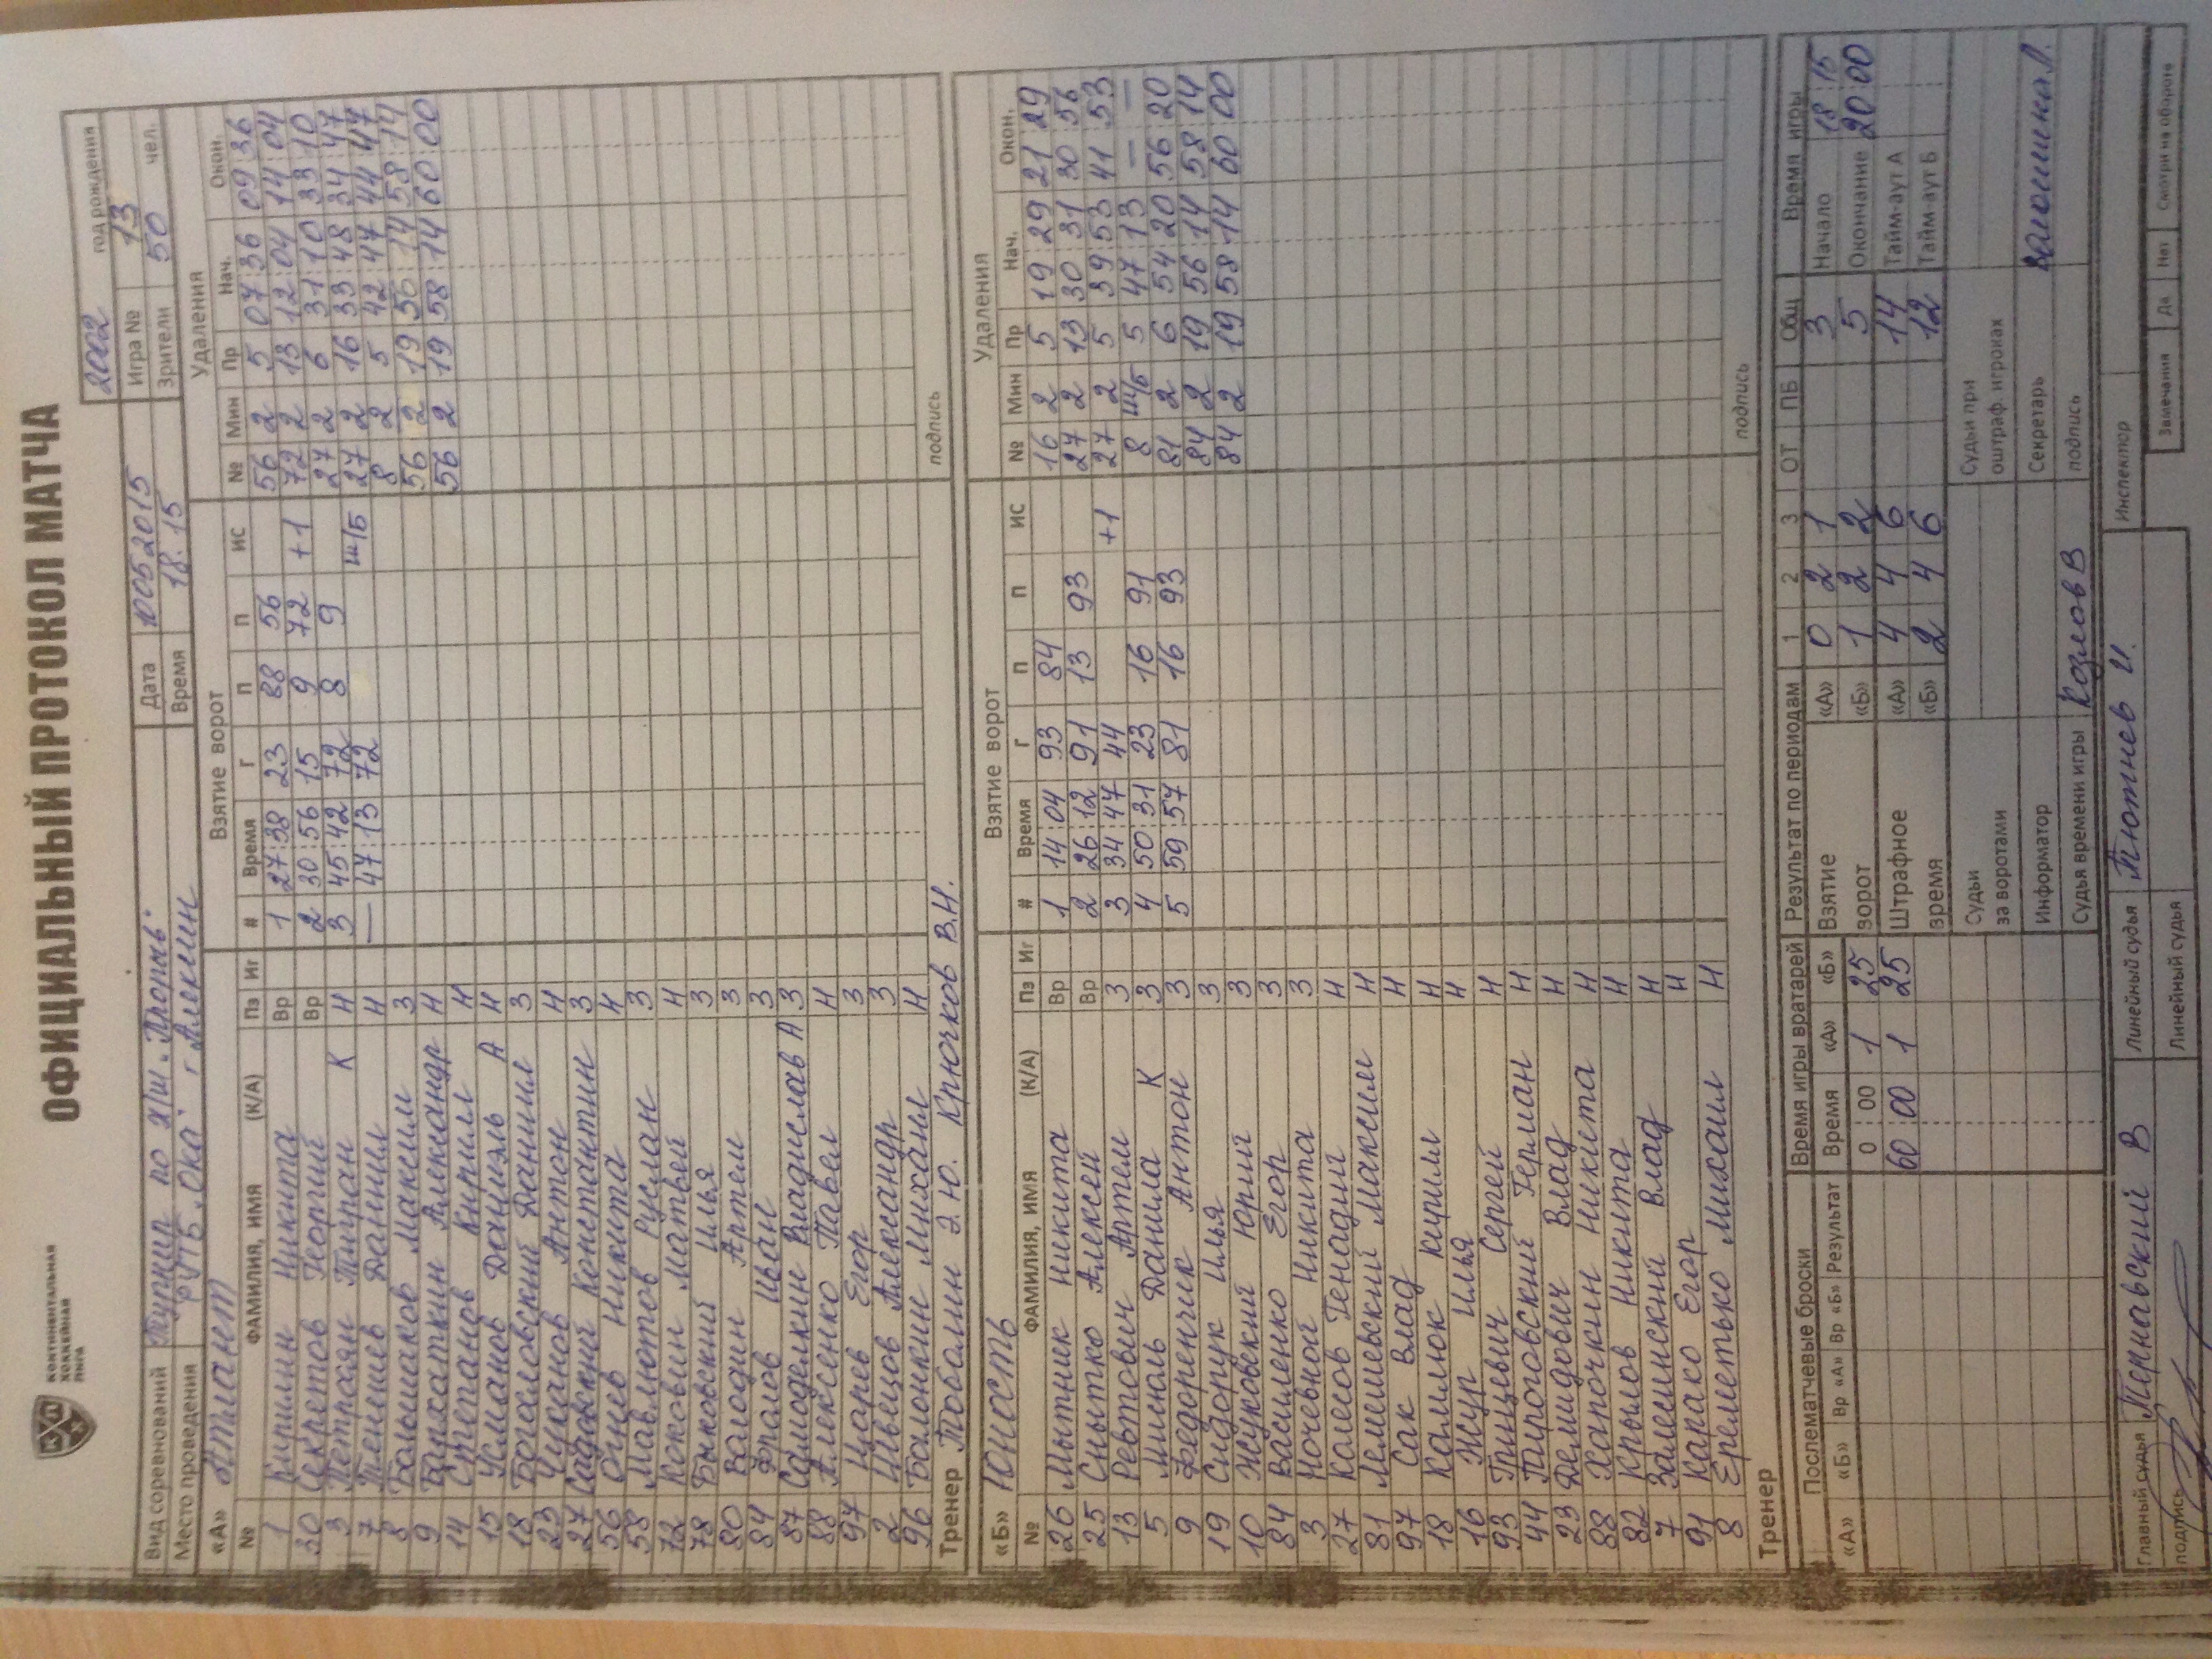 КОНТИНЕНТАЛЬНАЯ ХОККЕЙНАЯ ЛИГА
ОФИЦИАЛЬНЫЙ ПРОТОКОЛ МАТЧА
2002 год рождения
Вид соревнований Турнир по х/ш "Прорыв" Дата 10052015 Игра № 13
Место проведения РУТБ "Ока" г. Алексин Время 18.15 Зрители 50 чел.
«А» Атлант Взятие ворот Удаления
№ ФАМИЛИЯ, ИМЯ (К/А) Пз Иг # Время Г П П ИС № Мин Пр Нач. Окон.
1 Кирилин Никита Вр 1 27:38 23 88 56 56 2 5 07:36 09:36
30 Секретов Георгий Вр 2 30:56 15 9 72 +1 72 2 13 12:04 14:04
3 Петросян Тигран К Н 3 45:42 72 8 9 27 2 6 31:10 33:10
7 Тенишев Даниил Н — 47:13 72 ш/б 27 2 16 33:48 34:47
8 Большаков Максим З 8 2 5 42:47 44:47
9 Бархаткин Александр Н 56 2 19 56:14 58:14
14 Степанов Кирилл Н 56 2 19 58:14 60:00
15 Усманов Даниэль А Н
18 Богословский Даниил З
23 Чуканов Антон Н
27 Садовский Константин З
56 Огнев Никита Н
58 Мавлютов Руслан З
72 Коковин Матвей Н
78 Быковский Илья З
80 Володин Артем З
84 Фролов Иван З
87 Самоделкин Владислав А З
88 Алексенко Павел Н
97 Царев Егор З
2 Швецов Александр З
96 Болонкин Михаил Н
Тренер Тоболин Э.Ю. Крючков В.Н. подпись
«Б» Юность Взятие ворот Удаления
№ ФАМИЛИЯ, ИМЯ (К/А) Пз Иг # Время Г П П ИС № Мин Пр Нач. Окон.
26 Мытник Никита Вр 1 14:04 93 84 16 2 5 19:29 21:29
25 Снытко Алексей Вр 2 26:12 91 13 93 27 2 13 30:31 30:56
13 Ревтович Артем З 3 34:47 44 +1 27 2 5 39:53 41:53
5 Мисюль Данила К З 4 50:31 23 16 91 8 ш/б 5 47:13 — —
9 Федоренчик Антон З 5 59:57 81 16 93 81 2 6 54:20 56:20
19 Сидорук Илья З 84 2 19 56:14 58:14
10 Жуковский Юрий З 84 2 19 58:14 60:00
84 Василенко Егор З
3 Ночевной Никита З
27 Колесов Генадий Н
81 Лемешевский Максим Н
97 Сак Влад Н
18 Каллюк Кирилл Н
16 Жур Илья Н
93 Грицевич Сергей Н
44 Пироговский Герман Н
23 Демидович Влад Н
88 Харочкин Никита Н
82 Крылов Никита Н
7 Залесинский Влад Н
91 Карако Егор Н
8 Ереметько Михаил Н
Тренер подпись
Послематчевые броски Время игры вратарей Результат по периодам 1 2 3 ОТ ПБ Общ Время игры
«А» «Б» Вр «А» Вр «Б» Результат Время «А» «Б» Взятие «А» 0 2 1 3 Начало 18:15
0:00 1 25 ворот «Б» 1 2 2 5 Окончание 20:00
60:00 1 25 Штрафное «А» 4 4 6 14 Тайм-аут А
время «Б» 2 4 6 12 Тайм-аут Б
Судьи за воротами Судьи при оштраф. игроках
Информатор Секретарь
Судья времени игры Козлов В подпись
Главный судья Тернавский В Линейный судья Тютнев И. Инспектор
подпись Линейный судья Замечания Да Нет Смотри на обороте